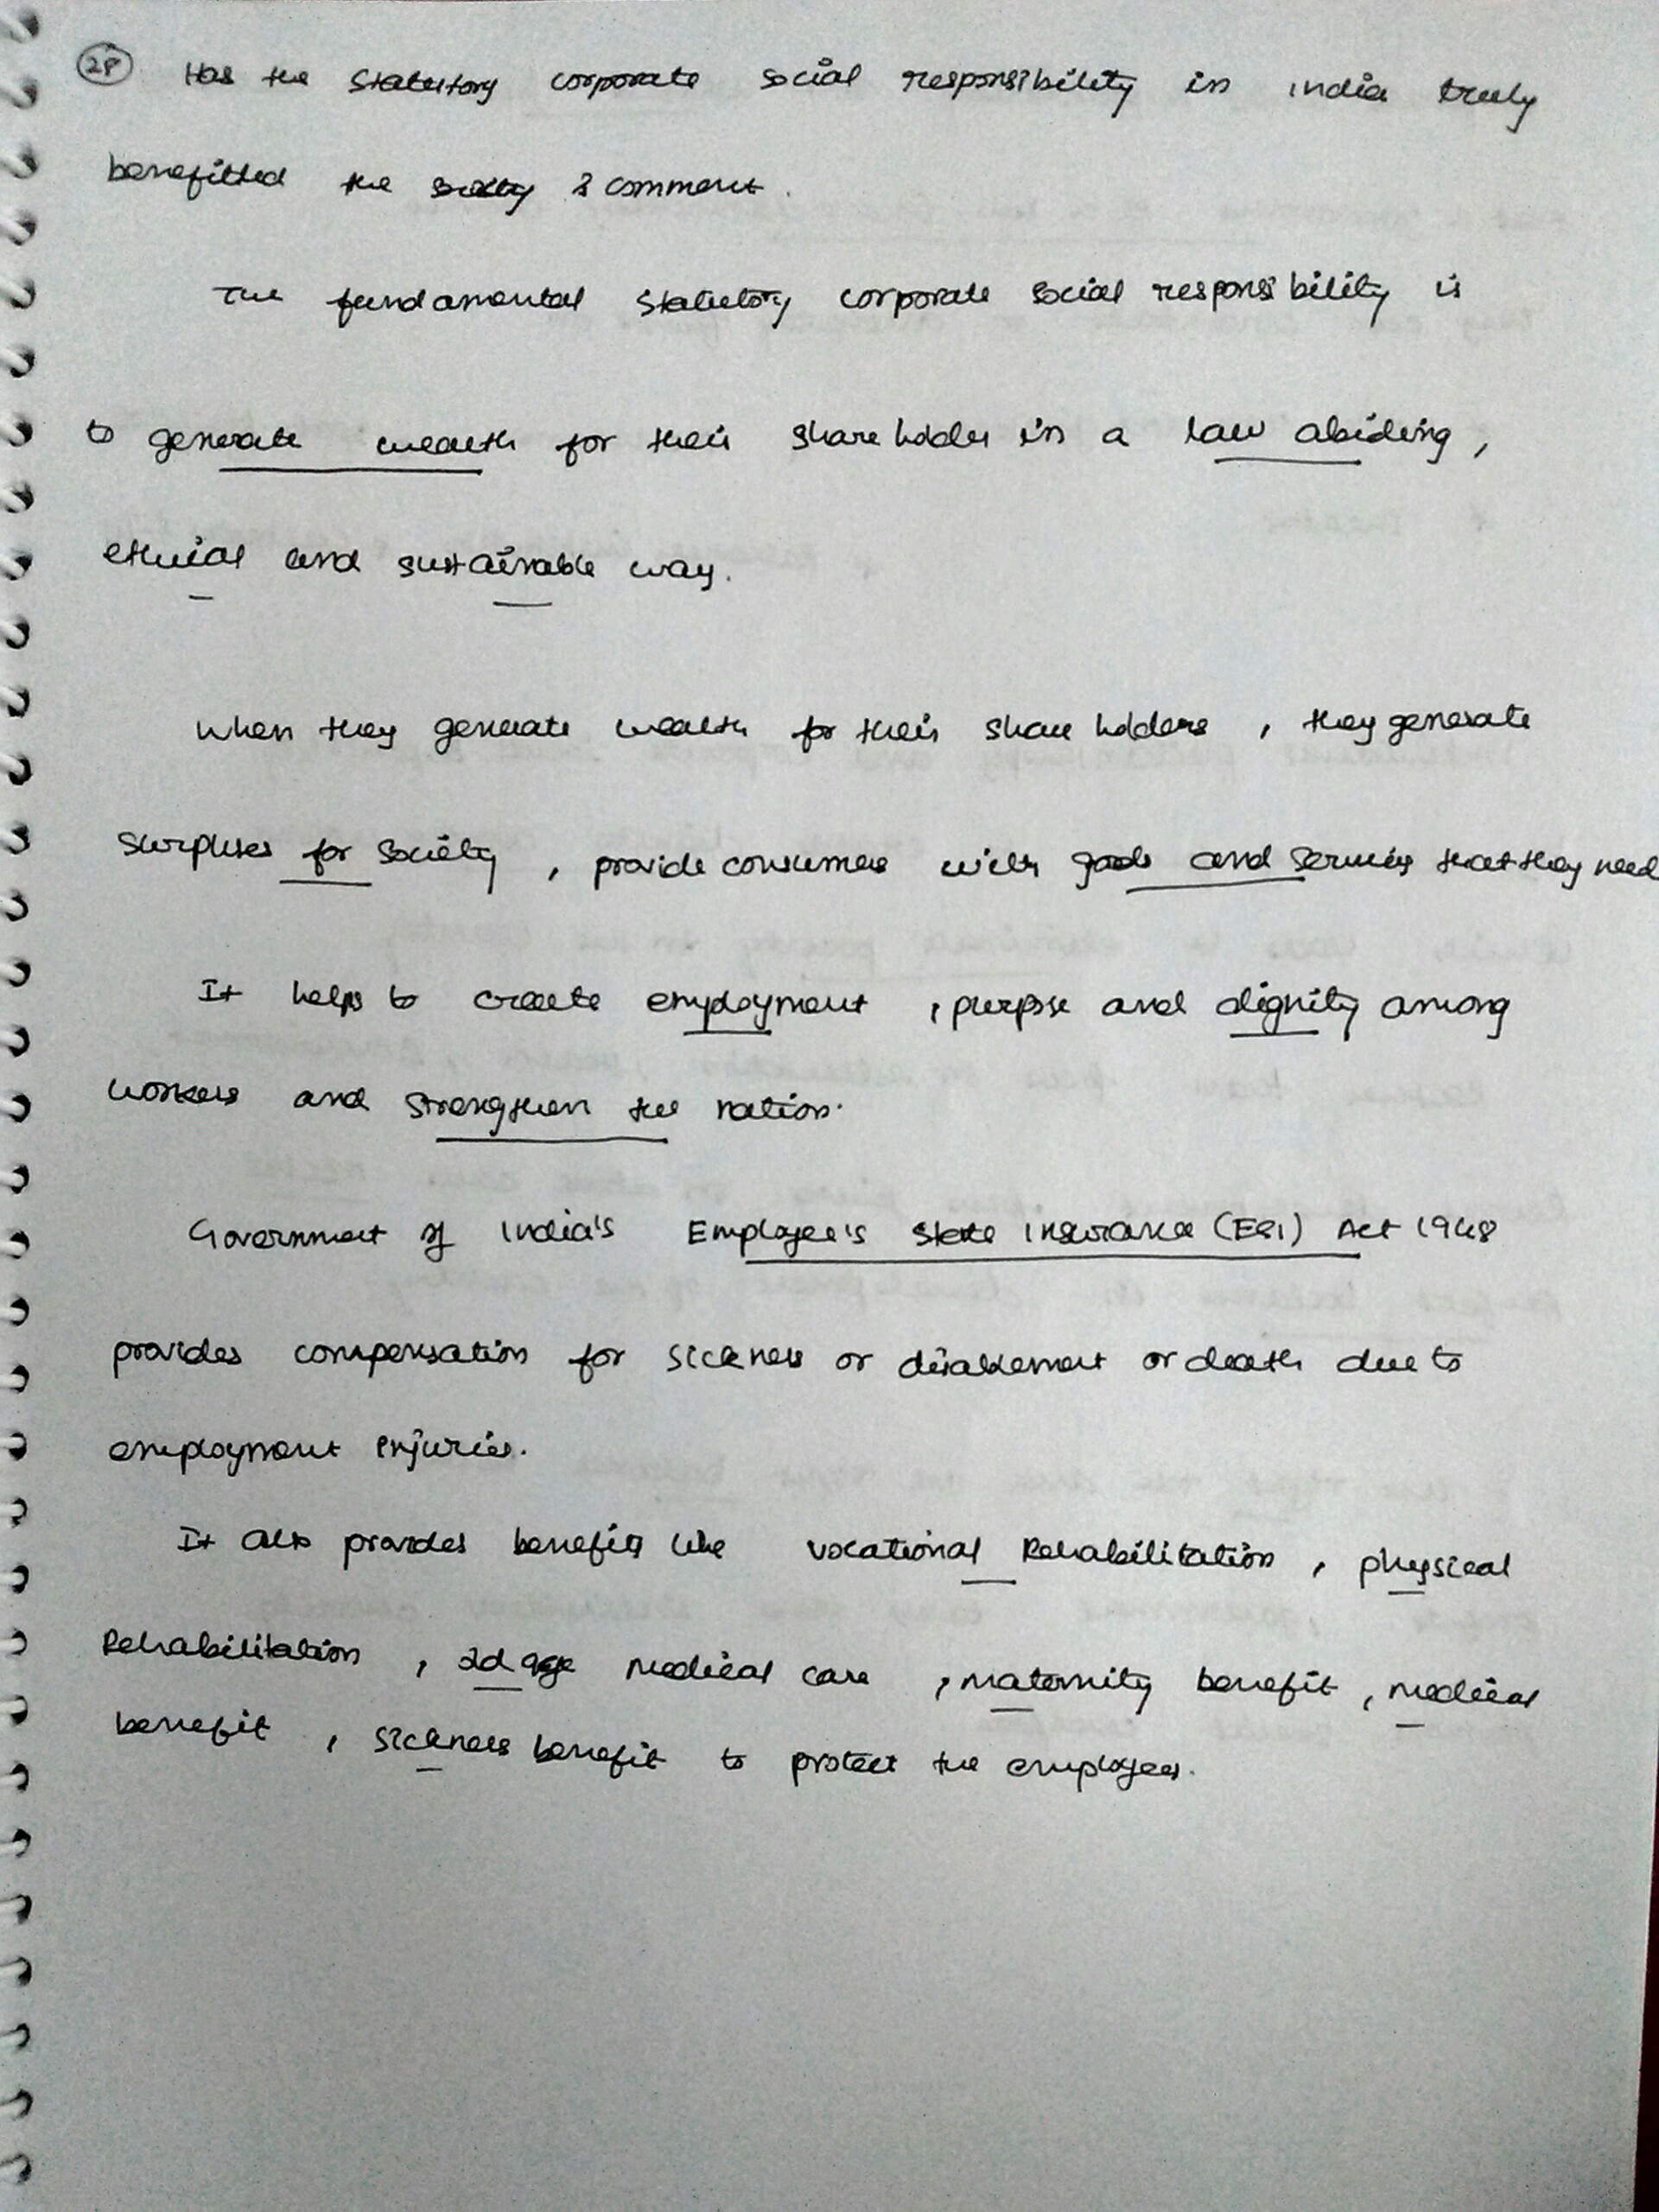 28 Has the statutory corporate social responsibility in india truly
benefitted the society ? comment.
The fundamental statutory corporate social responsibility is
to generate wealth for their share holder in a law abiding,
ethical and sustainable way.
When they generate wealth for their share holders, they generate
surpluses for society, provide consumers with goods and services that they need
It helps to create employment, purpose and dignity among
workers and strengthen the nation.
Government of India's Employee's State Insurance (ESI) Act 1948
provides compensation for sickness or disablement or death due to
employment injuries.
It also provides benefits like vocational Rehabilitation, physical
Rehabilitation, old age medical care, maternity benefit, medical
benefit, sickness benefit to protect the employees.